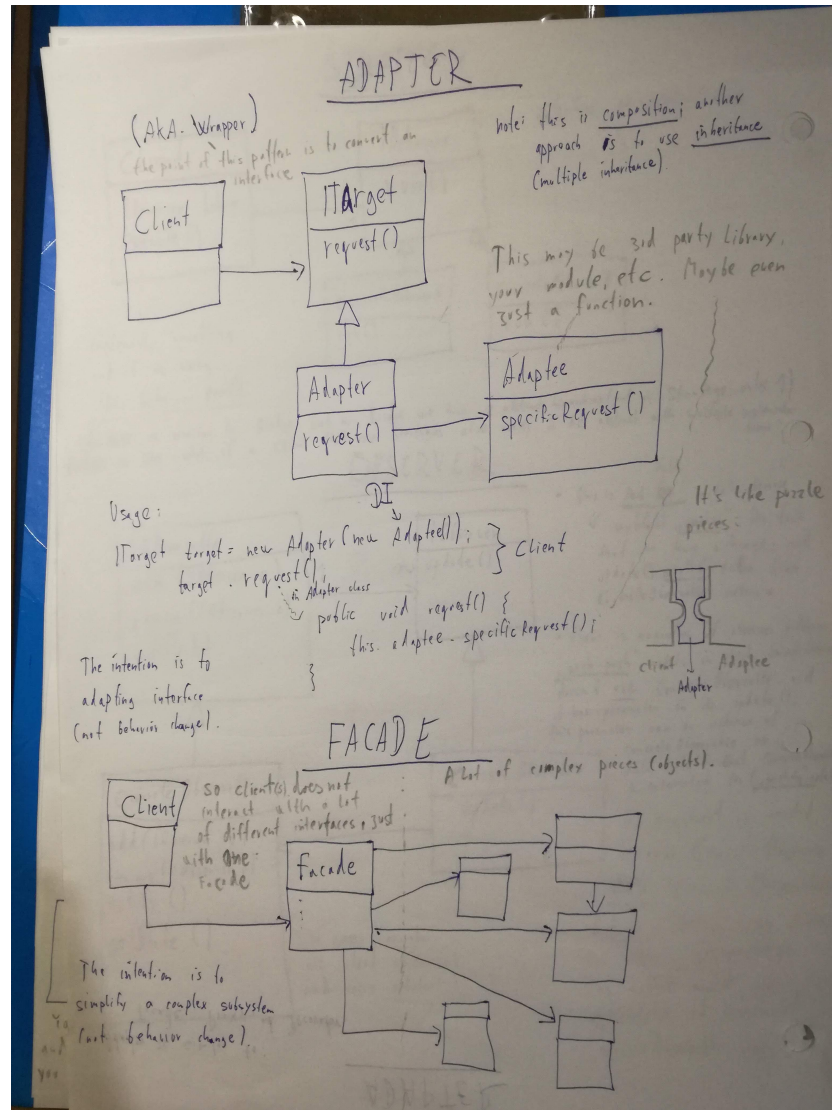 ADAPTER
(AKA. Wrapper)
the point of this pattern is to convert an
interface
note: this is composition; another
approach is to use inheritance
(multiple inheritance).
Client
ITArget
request()
This may be 3rd party library,
your module, etc. Maybe even
just a function.
Adapter
request()
Adaptee
specificRequest()
DI
Usage:
ITarget target = new Adapter(new Adaptee());
target.request();
Client
in Adapter class
public void request() {
this.adaptee.specificRequest();
}
It's like puzzle
pieces:
client
Adaptee
Adapter
The intention is to
adapting interface
(not behavior change).
FACADE
A lot of complex pieces (objects).
Client
so client(s) does not
interact with a lot
of different interfaces, just
with one
Facade
Facade
The intention is to
simplify a complex subsystem
(not behavior change).